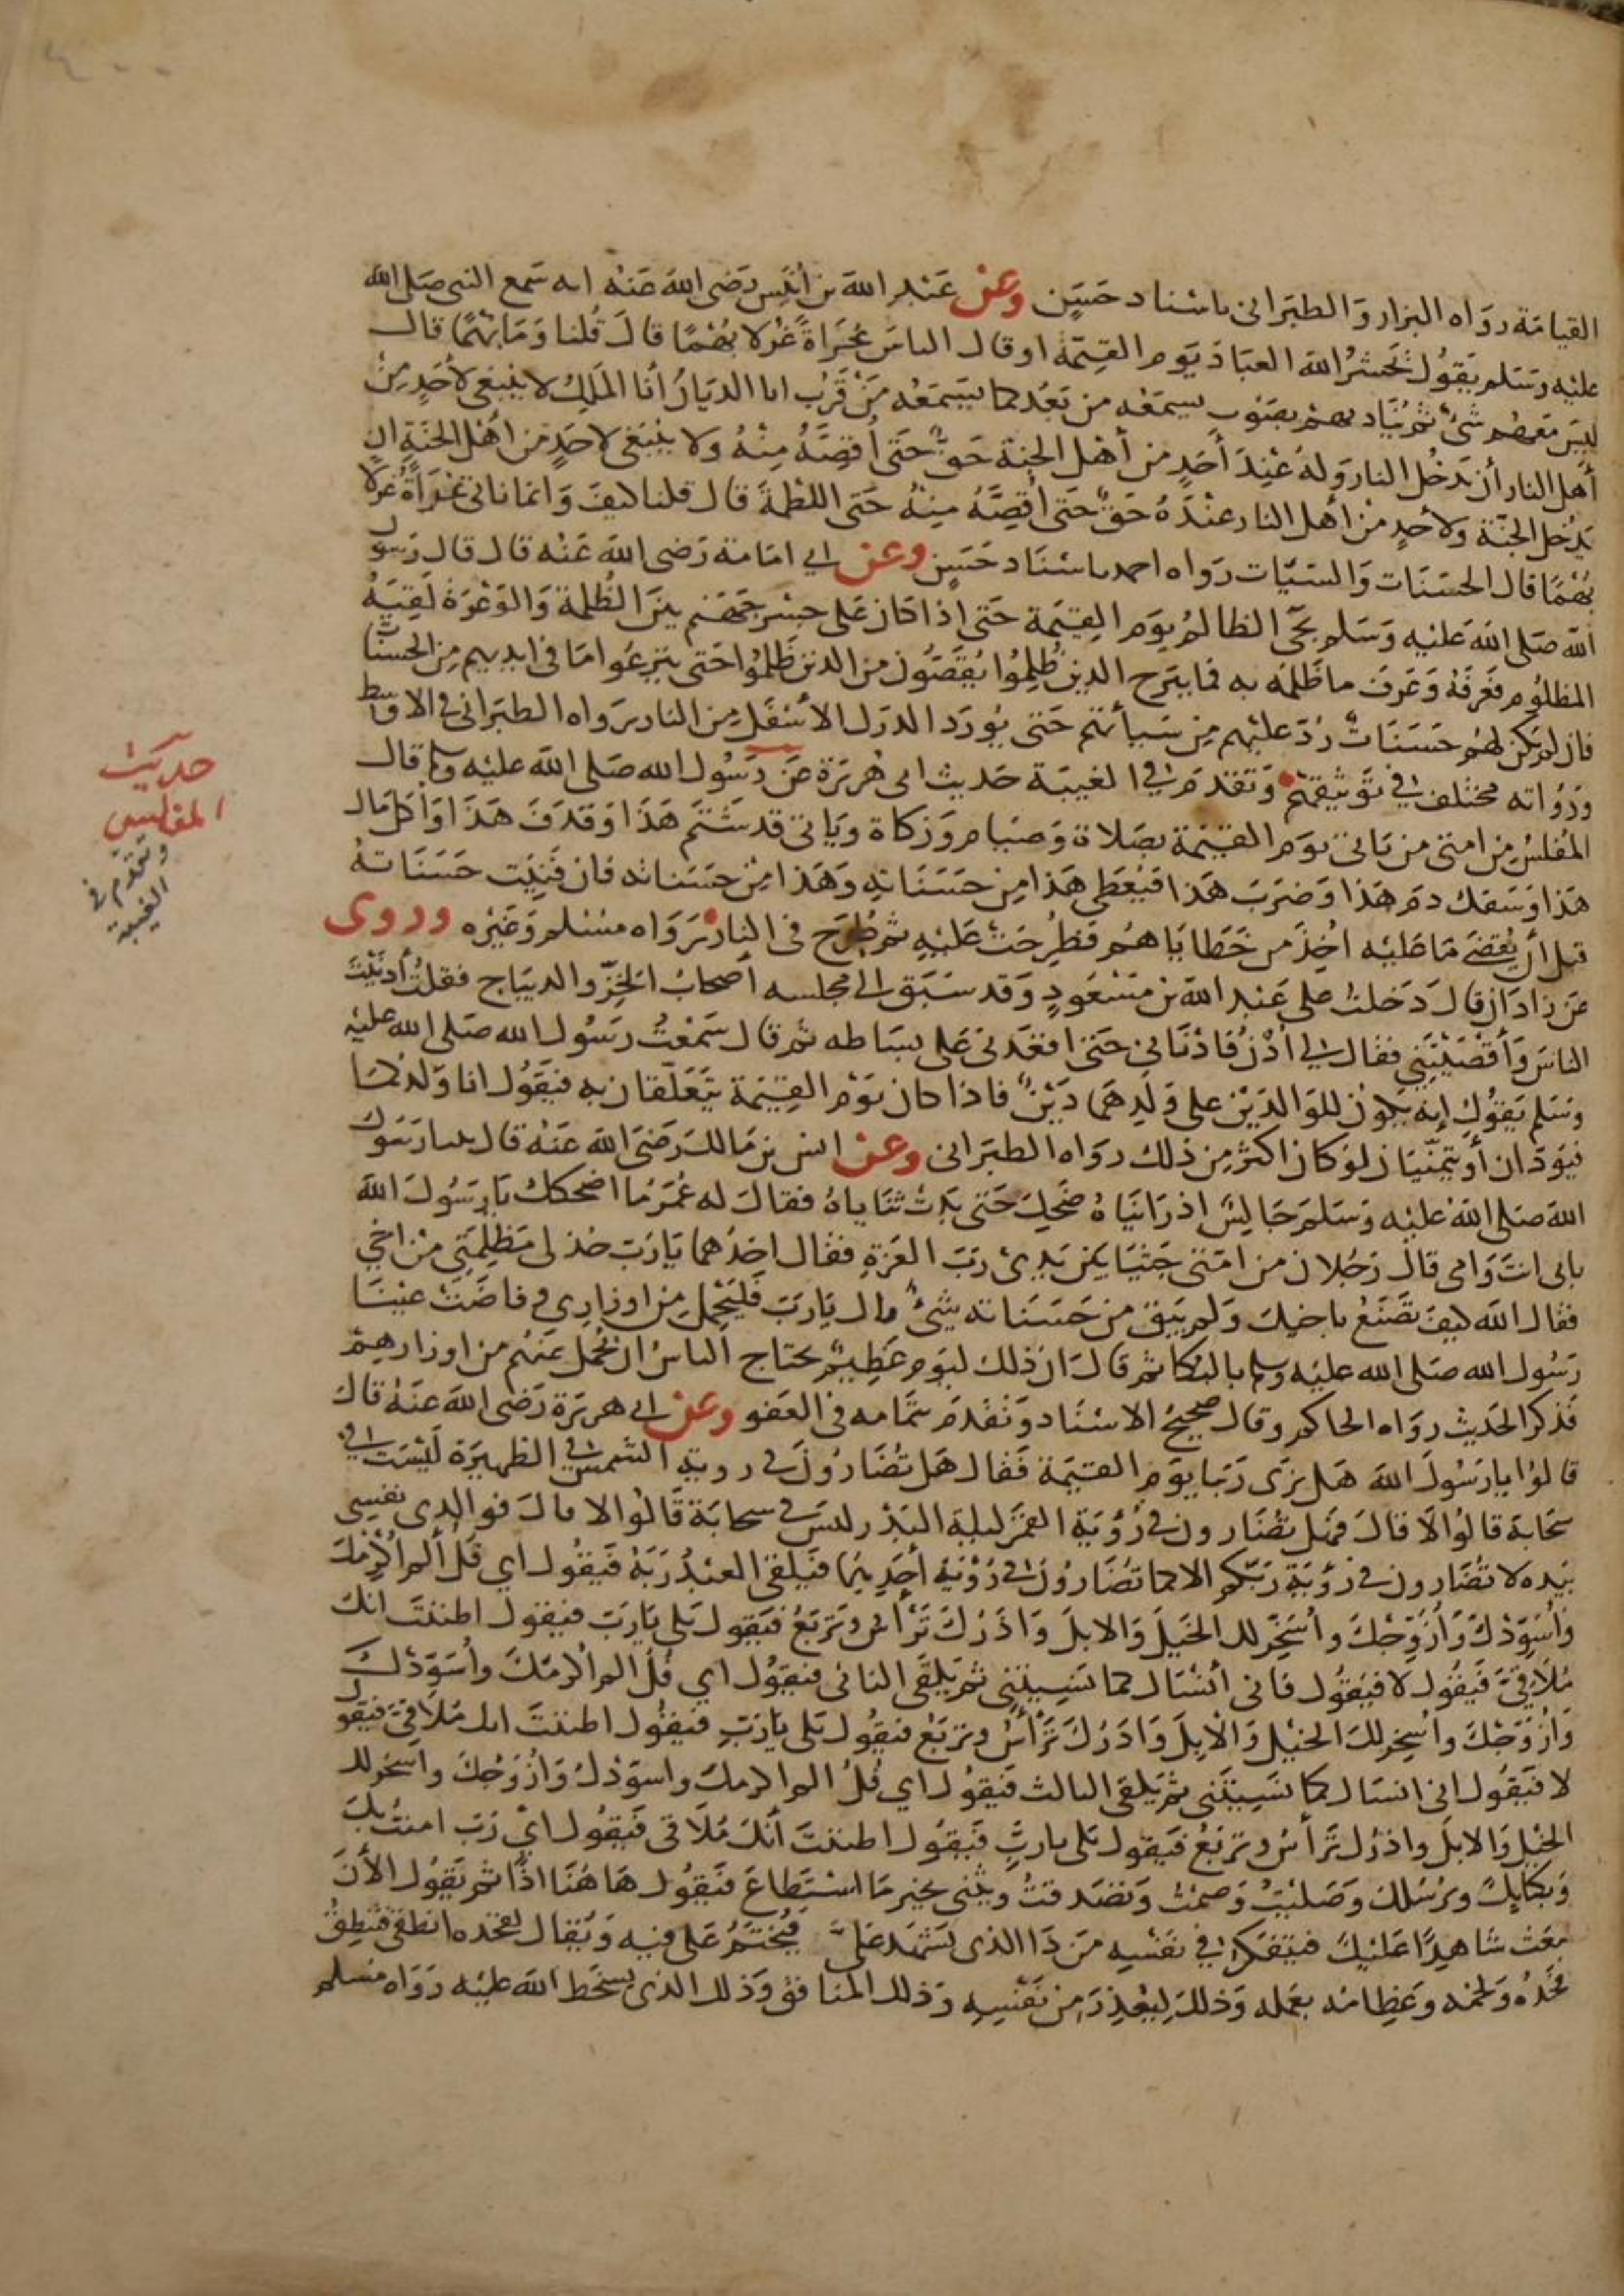 ٤٠٠
القيامة رواه البزار والطبراني باسناد حسن وعن عبد الله بن أنيس رضي الله عنه انه سمع النبي صلى الله
عليه وسلم يقول يحشر الله العباد يوم القيمة او قال الناس عُراةً غرلا بُهْمًا قال قُلنا وما بُهمًا قال
ليس معهم شئ ثم يناديهم بصوت يسمعه من بَعُد كما يسمعه من قَرُب انا الديان أنا الملك لا ينبغي لأحدٍ من
أهل النار أن يدخل النار وله عند أحدٍ من أهل الجنة حقٌ حتى أقصَّهُ منهُ ولا ينبغي لاحدٍ من أهل الجنة ان
يدخل الجنّة ولأحدٍ من أهل النار عندهُ حقٌ حتى أقصَّهُ منه حتى اللطمة قال قلنا كيف وانما ناتي عُراةً غرلا
بُهْمًا قال الحسنات والسيّات رواه احمد باسناد حسنٍ وعن ابي امامة رضي الله عنه قال قال رسول
الله صلى الله عليه وسلم يجئ الظالم يوم القيمة حتى إذا كان على جسر جهنم بين الظُلمة والوعرة لقيهُ
المظلوم فعرفهُ وعرف ما ظلمه به فما يبرح الذين ظُلِمُوا يُقَصّون من الذين ظَلموا حتى ينزعوا ما في ايديهم من الحسنات
فان لم يكن لهم حسناتٌ رُدّ عليهم من سيأتهم حتى يُورَد الدرك الأسفل من النار رواه الطبراني في الاوسط
ورُواته مختلف في توثيقهم وتقدم في الغيبة حديث ابي هريرة عن رسول الله صلى الله عليه وسلم قال
المُفلسُ من امتي من ياتي يوم القيمة بصلاة وصيام وزكاة وياتي قد شتم هذا وقذف هذا وأكل مال
هذا وسفك دم هذا وضرب هذا فيُعطى هذا من حسناته وهذا من حسناته فان فَنِيَت حسناتهُ
قبل أن يُقضى ما عليه اخذ من خطاياهم فطُرحت عليه ثم طُرح في النار رواه مسلم وغيره وروى
عن زاذان قال دخلتُ على عبد الله بن مسعودٍ وقد سبق الى مجلسه أصحابُ الخزّ والديباج فقلتُ أدنيت
الناس وأقصيتني فقال لي أُدْنُ فادناني حتى اقعدني على بساطه ثم قال سمعتُ رسول الله صلى الله عليه
وسلم يقول إنه يكون للوالدين على ولدهما دينٌ فاذا كان يوم القيمة يتعلقان به فيقول انا ولدكما
فيودان أو يتمنيان لو كان اكثر من ذلك رواه الطبراني وعن انس بن مالك رضي الله عنه قال بينا رسول
الله صلى الله عليه وسلم جالسٌ اذ رايناهُ ضحِك حتى بدت ثناياهُ فقال له عُمر ما اضحكك يا رسول الله
بابي انت وامي قال رجلان من امتي جثيا بين يدي رب العزة فقال احدُهما يا رب خذ لي مظلمتي من اخي
فقال الله كيف تصنع باخيك ولم يبق من حسناته شئٌ قال يا رب فليحمل من اوزاري وفاضت عينا
رسول الله صلى الله عليه وسلم بالبكا ثم قال ان ذلك ليوم عظيم يحتاج الناسُ ان يُحمل عنهم من اوزارهم
فذكر الحديث رواه الحاكم وقال صحيح الاسناد وتقدم بتمامه في العفو وعن ابي هريرة رضي الله عنه قال
قالوا يا رسول الله هل نرى ربنا يوم القيمة فقال هل تُضارون في روية الشمس في الظهيرة ليست في
سحابة قالوا لا قال فهل تُضارون في رُؤية القمر ليلة البدر ليس في سحابة قالوا لا قال فو الذي نفسي
بيده لا تُضارون في رؤية ربّكم الا كما تُضارون في رُؤية أحدهما فيلقى العبد ربَّه فيقول اي فُل ألم أُكرمك
وأُسوّدك وأزوّجك وأُسخّر لك الخيل والابل واذرك ترأس وتربَعُ فيقول بلى يا رب فيقول اظننت انك
مُلاقيّ فيقول لا فيقول فاني أنساك كما نسيتني ثم يلقى الثاني فيقول اي فُل الم اكرمك وأُسوّدك
وأزوّجك وأُسخر لك الخيل والابل واذرك ترأس وتربَع فيقول بلى يا ربّ فيقول اظننت انك مُلاقيّ فيقول
لا فيقول اني انساك كما نسيتني ثم يلقى الثالث فيقول اي فُلُ الم اكرمك واسوّدك وأزوّجك واسخر لك
الخيل والابل واذرك ترأسُ وتربَعُ فيقول بلى يا ربِّ فيقول اظننت أنك مُلاقي فيقول ايْ رب امنتُ بك
وبكتابك وبرُسُلك وصليتُ وصمتُ وتصدقتُ ويثني بخير ما استطاع فيقول هاهُنا اذًا ثم يقول الأن
نبعث شاهِدًا عليك فيتفكر في نفسِه من ذا الذي يشهد عليَّ فيُختم على فيه ويُقال لفخذه انطقي فتنطِقُ
فخذُه ولحمه وعِظامه بعمله وذلك ليُعذِر من نفسِهِ وذلك المنافق وذلك الذي يسخط الله عليه رواه مسلم
حديث
المفلس
وتقدم في
الغيبة